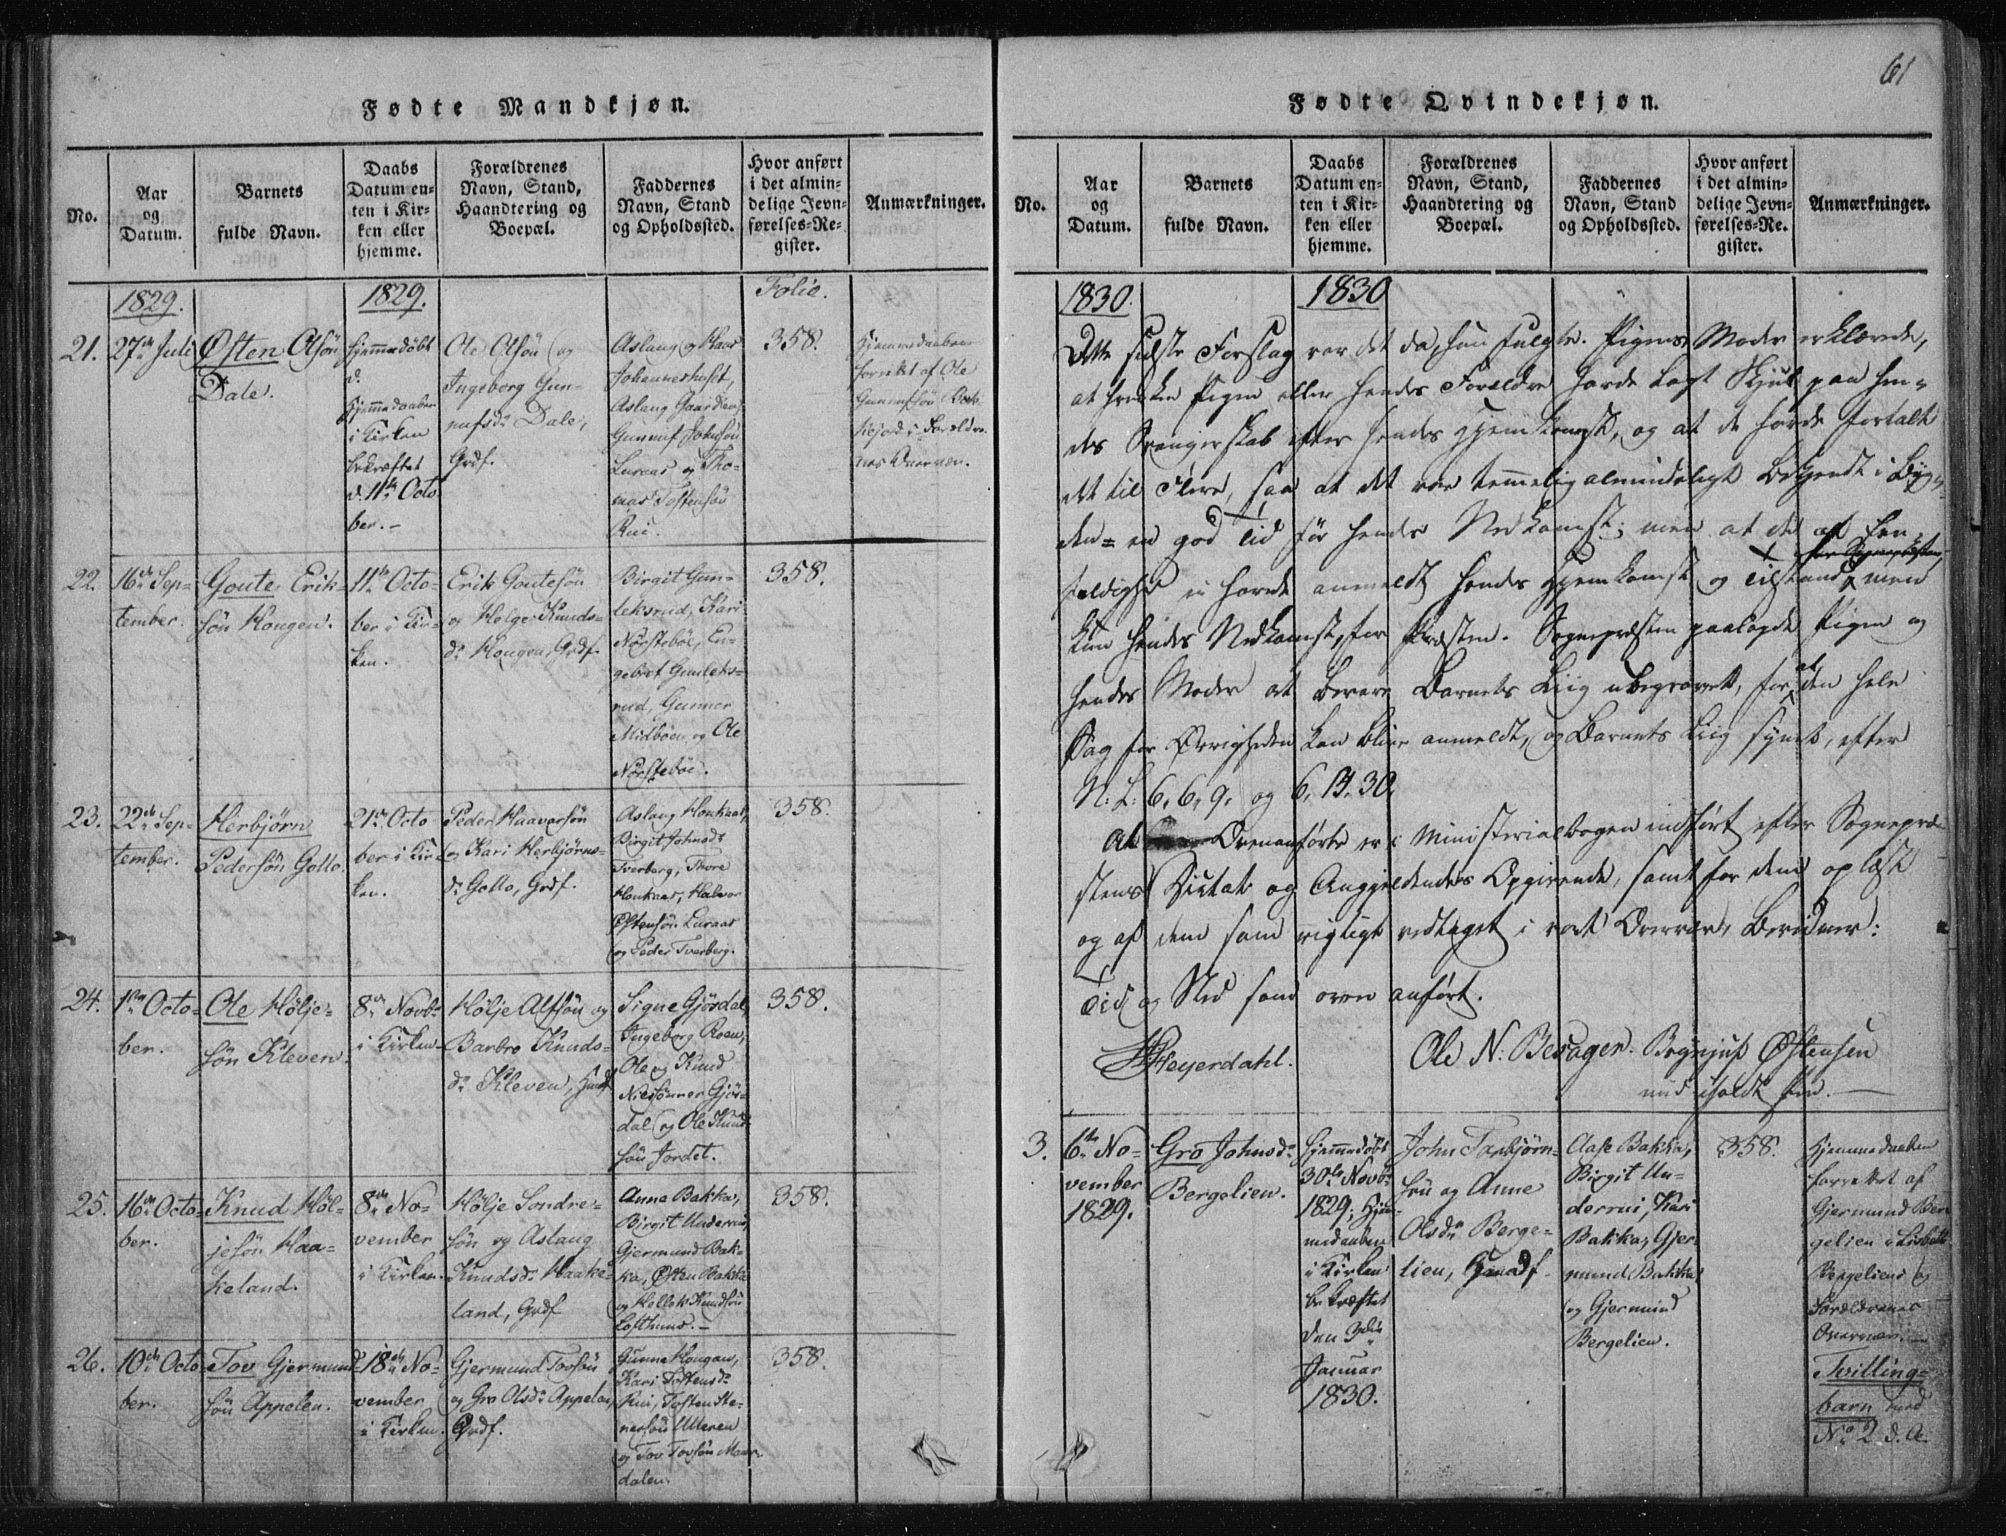 61
Fødte Mandkjøn.
No.
Aar
og
Datum.
Barnets
fulde Navn.
Daabs
Datum en-
ten i Kir-
ken eller
hjemme.
Forældrenes
Navn, Stand,
Haandtering og
Boepæl.
Faddernes
Navn, Stand
og Opholdssted.
Hvor anført
i det almin-
delige Jevn-
førelses-Re-
gister.
Anmærkninger.
1829.
1829.
Folio.
21.
27de Juli
Østen Olsön
Dale.
Hjemmedöbt
d.
Hjemmedaaben
i Kirken
bekræftet
d. 11te Octo
ber.-
Ole Olsön og
Ingeborg Gun-
nufsdr Dale,
Grdf.
Aslaug og
Johanneshuset,
Aslaug
Gunnuf Johnsön
Luraas og Tho-
mas Tostensön
Rui.
358.
Hjemmedaaben
forrettet af Ole
Gunnufsön
i Foreldre
nes Overvær.
22.
16de Sep-
tember.
Goute Erik-
sön Hougen.
11te Octo-
ber i Kir-
ken.
Erik Goutesön
og Helge Knuds-
dr Hougen, Grdf.
Birgit Gun-
leksrud, Kari
Nörstebøe, En-
gebret Gunleks-
rud, Gunner
Midbøen og Ole
Nörstebøe.
358.
23.
22de Sep-
tember.
Herbjørn
Pedersön Gollo.
21de Octo
ber i Kir-
ken.
Peder Haavorsön
og Kari Herbjørns-
dr Gollo, Grdf.
Aslaug Honkaas,
Birgit Johnsdr
Tverberg, Thore
Honkaas, Halvor
Østensön Luraas
og Peder Tverberg.
358.
24.
1ste Octo-
ber.
Ole Hölje-
sön Kleven.
8de Novbr
i Kirken.
Hölje Alfsön og
Barbro Knuds-
dr Kleven, Husf.
Signe Gjösdal,
Ingeborg Roen,
Ole og Knud
Nielsönner Gjös-
dal og Ole Knud
sön Jordet.
358.
25.
16de Octo-
ber.
Knud Höl-
jesön Haa-
keland.
8de No-
vember
i Kirken.
Hölje Sondre-
sön og Aslaug
Knudsdr Haake-
land, Grdf
Anne Bakka,
Birgit Underrui,
Gjermund Bak-
ka, Østen Bakka
og Kittel Knudsön
Lofthuus.-
358.
26.
10de Octo
ber.
Tov Gjermund
sön Appelen.
18de No-
vember
i Kirken.
Gjermund Tovsön
og Gro Olsdr Appelen,
Grdf.
Gunne Hougan,
Kari Tostensdr
Rui, Tosten Ste-
nersön Uleren
og Tov Tovsön Maar-
dalen.
358.
Fødte Qvindekjøn.
No.
Aar
og
Datum.
Barnets
fulde Navn.
Daabs
Datum en-
ten i Kir-
ken eller
hjemme.
Forældrenes
Navn, Stand,
Haandtering og
Boepæl.
Faddernes
Navn, Stand
og Opholdssted.
Hvor anført
i det almin-
delige Jevn-
førelses-Re-
gister.
Anmærkninger.
1830.
1830
Dette sidste Forslag var det da, hun fulgte. Pigens Moder erklærede,
at hverken Pigen eller hendes Foreldre havde lagt Skjul paa hen-
des Svangerskab efter hendes Hjemkomst, og at de havde fortalt
det til Flere, saa at det var temmelig almindeligt bekjendt i Byg-
den en god Tid för hendes Nedkomst; men at de af Een-
foldighed ei havde anmeldt hendes Hjemkomst og Tilstand for Sognepræsten, men
kun hendes Nedkomst, for Præsten. Sognepræsten paalagde Pigen og
hendes Moder at bevare Barnets Liig ubegravet, for at den hele
Sag for Øvrigheden kan blive anmeldt, og Barnets Liig synet, efter
N: L: 6, 6, 9, og 6, 14. 30.
At Ovenanførte er i Ministerialbogen indført efter Sognepræ-
stens Dictat og Anggjeldendes Opgivende, samt for dem oplæst
og af dem som rigtigt vedtaget i vort Overvær, bevidner:
Tid og Sted som oven anført.
Heyerdahl.
Ole N: Besager. Brynjulf Østensen
med iholdt Pen.
3.
6te No-
vember
1829.
Gro Johnsdr
Bergelien.
Hjemmedøbt
30te Novbr
1829; Hjem-
medaaben
i Kirken
bekræftet
den 3die
Januar
1830.
John Torbjørn-
sön og Anne
Olsdr Berge-
lien, Huusf.
Aase Bakka,
Birgit Un-
derrui, Kari
Bakka, Gjer-
mund Bakka
og Gjermund
Bergelien.
358.
Hjemmedaaben
forrettet af
Gjermund Ber
gelien i
Bergeliens og
Forældrenes
Overvær.-
Tvilling-
barn med
No 2 d. A.